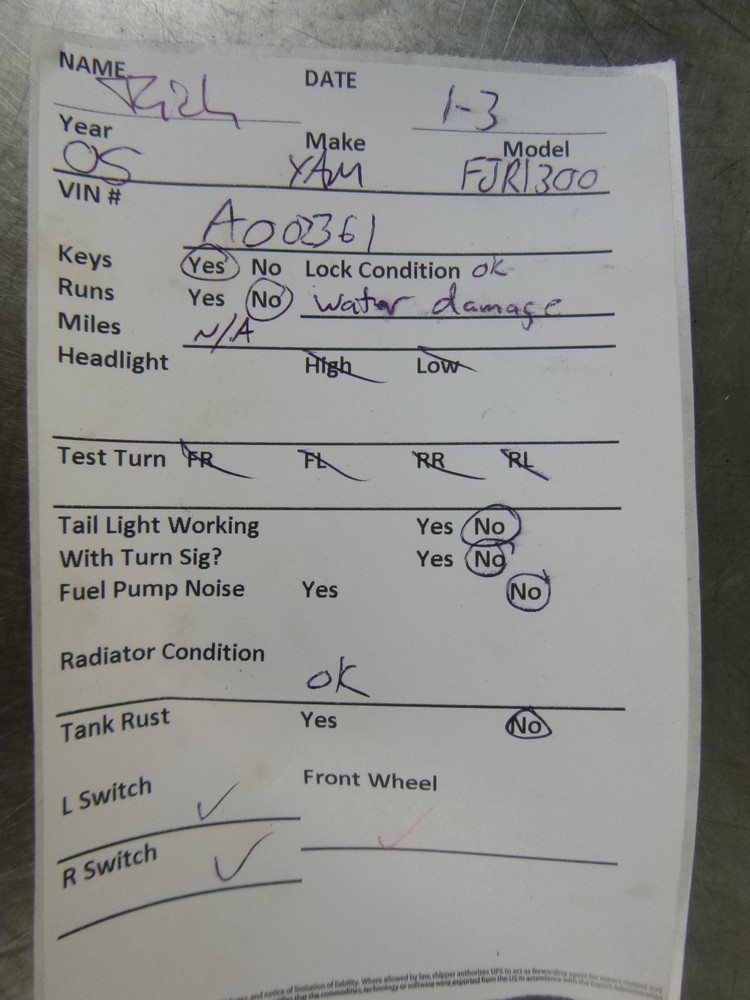 NAME Rich DATE 1-3
Year 05 Make YAM Model FJR1300
VIN # A002361
Keys Yes No Lock Condition ok
Runs Yes No water damage
Miles N/A
Headlight High Low
Test Turn FR FL RR RL
Tail Light Working Yes No
With Turn Sig? Yes No
Fuel Pump Noise Yes No
Radiator Condition ok
Tank Rust Yes No
L Switch ✓ Front Wheel ✓
R Switch ✓
and notice of limitation of liability. Where allowed by law, shipper authorizes UPS to act as forwarding agent for export control and
that the commodities, technology or software were exported from the US in accordance with the Export Administration